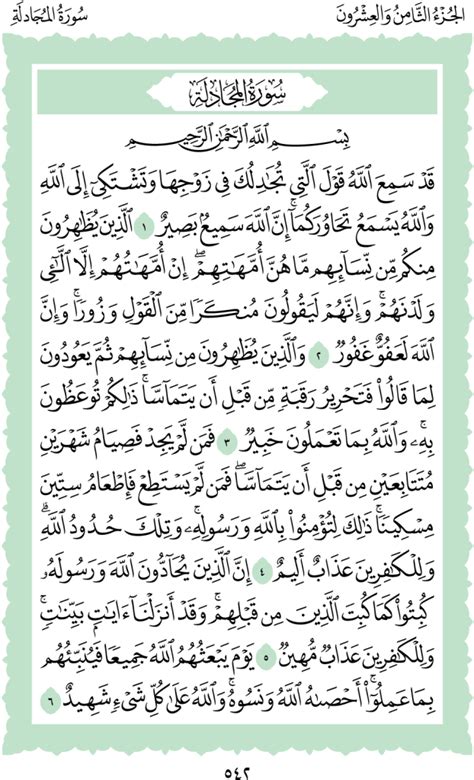 الجُزْءُ الثَّامِنُ وَالعِشْرُونَ
سُورَةُ المُجَادلَةِ
سُورَةُ المُجَادلَةِ
بِسْمِ ٱللَّهِ ٱلرَّحْمَٰنِ ٱلرَّحِيمِ
قَدْ سَمِعَ ٱللَّهُ قَوْلَ ٱلَّتِي تُجَٰدِلُكَ فِي زَوْجِهَا وَتَشْتَكِيٓ إِلَى ٱللَّهِ
وَٱللَّهُ يَسْمَعُ تَحَاوُرَكُمَآۚ إِنَّ ٱللَّهَ سَمِيعُۢ بَصِيرٌ ١ ٱلَّذِينَ يُظَٰهِرُونَ
مِنكُم مِّن نِّسَآئِهِم مَّا هُنَّ أُمَّهَٰتِهِمْۖ إِنْ أُمَّهَٰتُهُمْ إِلَّا ٱلَّٰٓـِٔي
وَلَدْنَهُمْۚ وَإِنَّهُمْ لَيَقُولُونَ مُنكَرًا مِّنَ ٱلْقَوْلِ وَزُورًاۚ وَإِنَّ
ٱللَّهَ لَعَفُوٌّ غَفُورٌ ٢ وَٱلَّذِينَ يُظَٰهِرُونَ مِن نِّسَآئِهِمْ ثُمَّ يَعُودُونَ
لِمَا قَالُوا۟ فَتَحْرِيرُ رَقَبَةٍ مِّن قَبْلِ أَن يَتَمَآسَّاۚ ذَٰلِكُمْ تُوعَظُونَ
بِهِۦۚ وَٱللَّهُ بِمَا تَعْمَلُونَ خَبِيرٌ ٣ فَمَن لَّمْ يَجِدْ فَصِيَامُ شَهْرَيْنِ
مُتَتَابِعَيْنِ مِن قَبْلِ أَن يَتَمَآسَّاۖ فَمَن لَّمْ يَسْتَطِعْ فَإِطْعَامُ سِتِّينَ
مِسْكِينًاۚ ذَٰلِكَ لِتُؤْمِنُوا۟ بِٱللَّهِ وَرَسُولِهِۦۚ وَتِلْكَ حُدُودُ ٱللَّهِۗ
وَلِلْكَٰفِرِينَ عَذَابٌ أَلِيمٌ ٤ إِنَّ ٱلَّذِينَ يُحَآدُّونَ ٱللَّهَ وَرَسُولَهُۥ
كُبِتُوا۟ كَمَا كُبِتَ ٱلَّذِينَ مِن قَبْلِهِمْۚ وَقَدْ أَنزَلْنَآ ءَايَٰتِۭ بَيِّنَٰتٍۚ
وَلِلْكَٰفِرِينَ عَذَابٌ مُّهِينٌ ٥ يَوْمَ يَبْعَثُهُمُ ٱللَّهُ جَمِيعًا فَيُنَبِّئُهُم
بِمَا عَمِلُوٓا۟ۚ أَحْصَىٰهُ ٱللَّهُ وَنَسُوهُۚ وَٱللَّهُ عَلَىٰ كُلِّ شَيْءٍ شَهِيدٌ ٦
٥٤٢